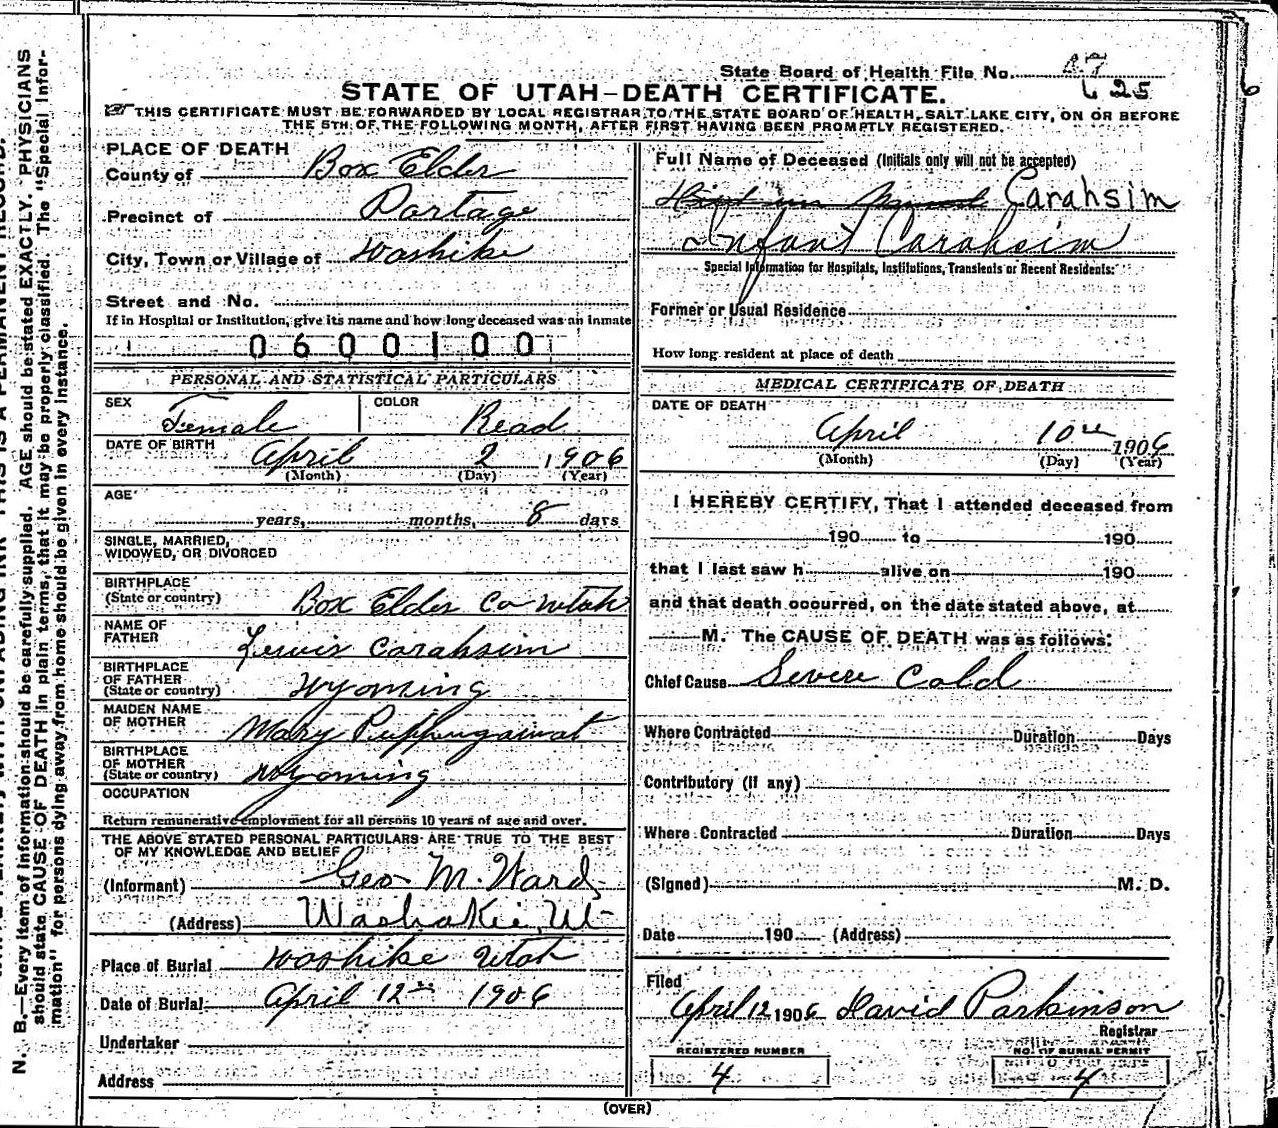 N. B.—Every item of information should be carefully supplied. AGE should be stated EXACTLY. PHYSICIANS
should state CAUSE OF DEATH in plain terms, that it may be properly classified. The "Special Infor-
mation" for persons dying away from home should be given in every instance.
State Board of Health File No.
625
STATE OF UTAH—DEATH CERTIFICATE.
THIS CERTIFICATE MUST BE FORWARDED BY LOCAL REGISTRAR TO THE STATE BOARD OF HEALTH, SALT LAKE CITY, ON OR BEFORE
THE 5TH OF THE FOLLOWING MONTH, AFTER FIRST HAVING BEEN PROMPTLY REGISTERED.
PLACE OF DEATH
County of Box Elder
Precinct of Portage
City, Town or Village of Washike
Street and No.
If in Hospital or Institution, give its name and how long deceased was an inmate
0600100
PERSONAL AND STATISTICAL PARTICULARS
SEX Female COLOR Read
DATE OF BIRTH April 2 1906
(Month) (Day) (Year)
AGE
years, months, 8 days
SINGLE, MARRIED,
WIDOWED, OR DIVORCED
BIRTHPLACE
(State or country) Box Elder Co Utah
NAME OF
FATHER Lewis Carahsim
BIRTHPLACE
OF FATHER
(State or country) Wyoming
MAIDEN NAME
OF MOTHER Mary
BIRTHPLACE
OF MOTHER
(State or country) Wyoming
OCCUPATION
Return remunerative employment for all persons 10 years of age and over.
THE ABOVE STATED PERSONAL PARTICULARS ARE TRUE TO THE BEST
OF MY KNOWLEDGE AND BELIEF
(Informant) Geo M. Ward
(Address) Washakie, Ut
Place of Burial Washike Utah
Date of Burial April 12 1906
Undertaker
Address
Full Name of Deceased (Initials only will not be accepted)
Carahsim
Infant Carahsim
Special Information for Hospitals, Institutions, Transients or Recent Residents:
Former or Usual Residence
How long resident at place of death
MEDICAL CERTIFICATE OF DEATH
DATE OF DEATH
April 10 1906
(Month) (Day) (Year)
I HEREBY CERTIFY, That I attended deceased from
190 to 190
that I last saw h alive on 190
and that death occurred, on the date stated above, at
M. The CAUSE OF DEATH was as follows:
Chief Cause Severe Cold
Where Contracted Duration Days
Contributory (if any)
Where Contracted Duration Days
(Signed) M. D.
Date 190 (Address)
Filed
April 12 1906 David Parkinson
Registrar
REGISTERED NUMBER
4
NO. OF BURIAL PERMIT
4
(OVER)